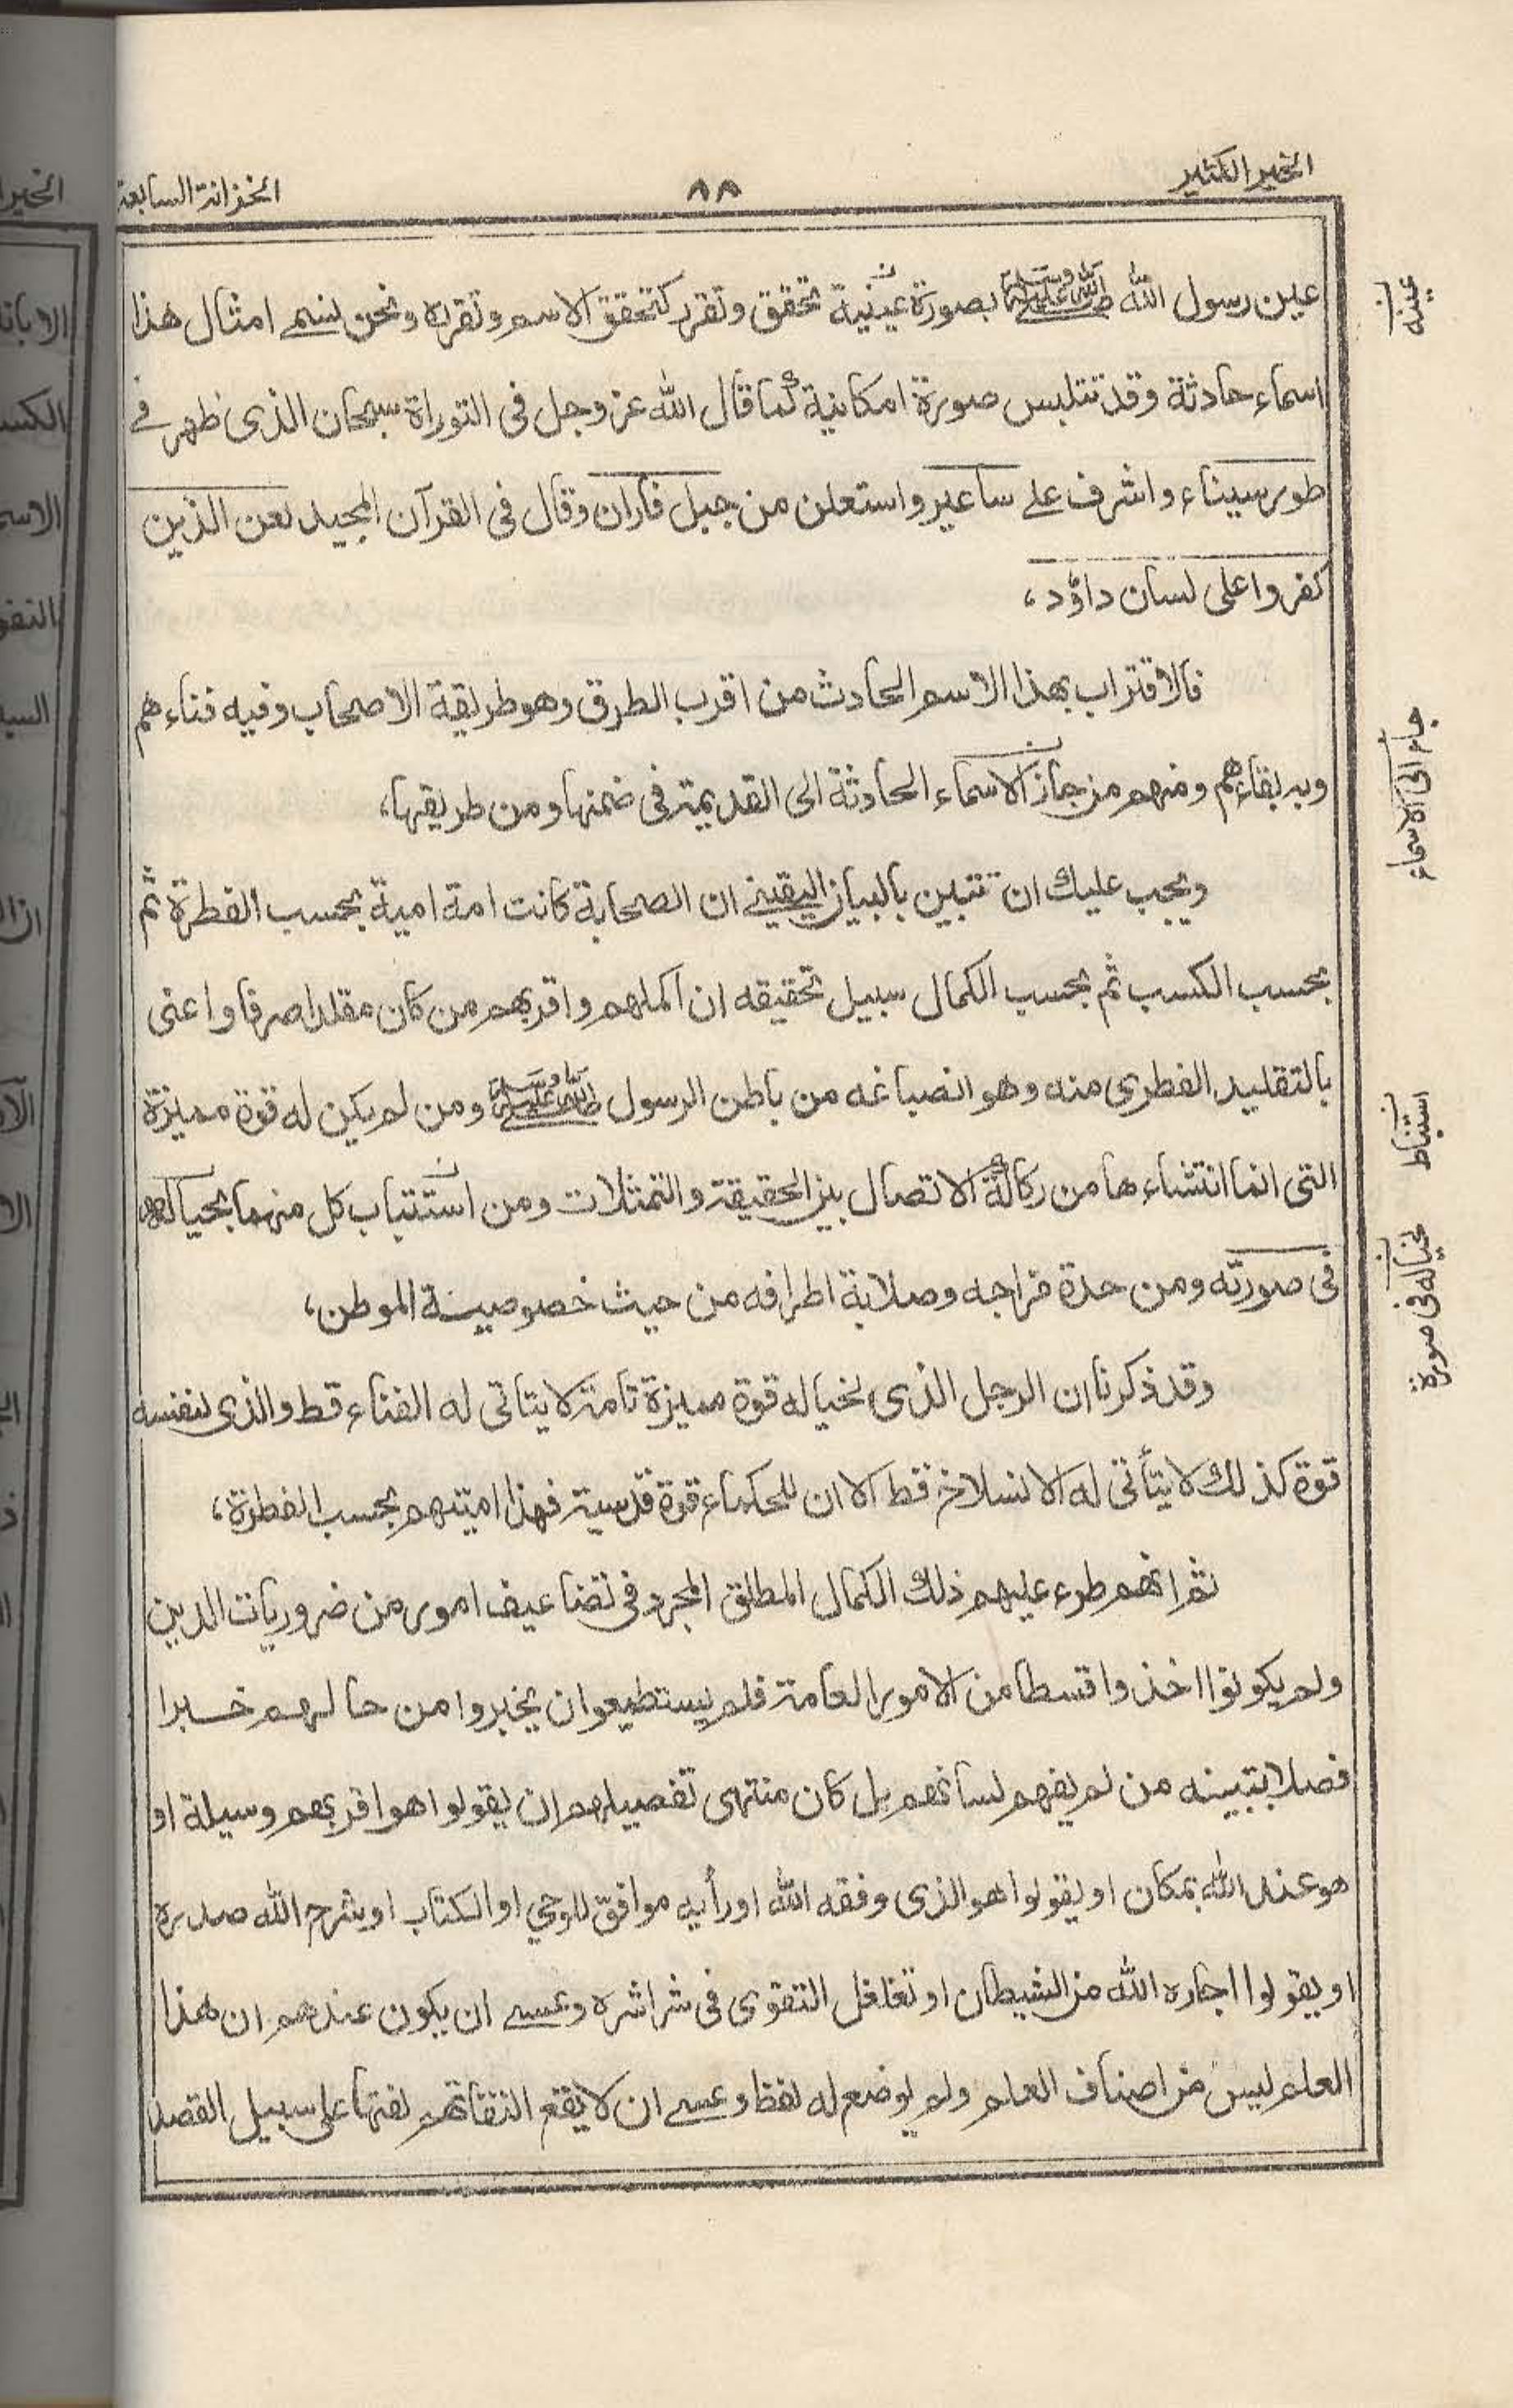 الخير الكثير
٨٨
الخزانة السابعة
عين رسول الله صلى الله عليه وسلم بصورة عينية تحقق وتقرر كتحقق الاسم وتقرره ونحن نسم امثال هذا
اسماء حادثة وقد تتلبس صورة امكانية كما قال الله عز وجل فى التوراة سبحان الذى ظهر فے
طور سيناء واشرف علے ساعير واستعلن من جبل فاران وقال فى القرآن المجيد لعن الذين
كفروا على لسان داؤد،
فالاقتراب بهذا الاسم الحادث من اقرب الطرق وهو طريقة الاصحاب وفيه فناء هم
وبه بقاءهم ومنهم من جاز الاسماء الحادثة الى القديمة فى ضمنها ومن طريقها،
ويجب عليك ان تتبين بالبيان اليقينے ان الصحابة كانت امة امية بحسب الفطرة ثم
بحسب الكسب ثم بحسب الكمال سبيل تحقيقه ان اكملهم واقربهم من كان مقلدا صرفا واعنى
بالتقليد الفطرى منه وهو انصباغه من باطن الرسول صلى الله عليه وسلم ومن لم يكن له قوة مميزة
التى انما انتشاء ها من ركاكة الاتصال بين الحقيقة والتمثلات ومن استتباب كل منهما بحياله
فى صورته ومن حدة مزاجه وصلابة اطرافه من حيث خصوصية الموطن،
وقد ذكرنا ان الرجل الذى لخياله قوة مميزة تامة لا يتاتى له الفناء قط والذى لنفسه
قوة كذلك لا يتأتى له الانسلاخ قط الا ان للحكماء قوة قدسية فهذا اميتهم بحسب الفطرة،
ثم انهم طرء عليهم ذلك الكمال المطلق المجرد فى تضاعيف امور من ضروريات الدين
ولم يكونوا اخذوا قسطا من الامور العامة فلم يستطيعوا ان يخبروا من حالهم خبرا
فصلا بتبينه من لم يفهم لسانهم بل كان منتهى تفصيلهم ان يقولوا هو اقربهم وسيلة او
هو عند الله بمكان او يقولوا هو الذى وفقه الله او رأيه موافق للوحي او الكتاب او شرح الله صدره
او يقولوا اجاره الله من الشيطان او تغلغل التقوى فى شراشره وعسے ان يكون عندهم ان هذا
العلم ليس من اصناف العلم ولم يوضع له لفظ وعسے ان لا يقع التفاتهم لفتها على سبيل القصد
عينه
جاء الى الاسماء
استنباط
بخياله فى صورة